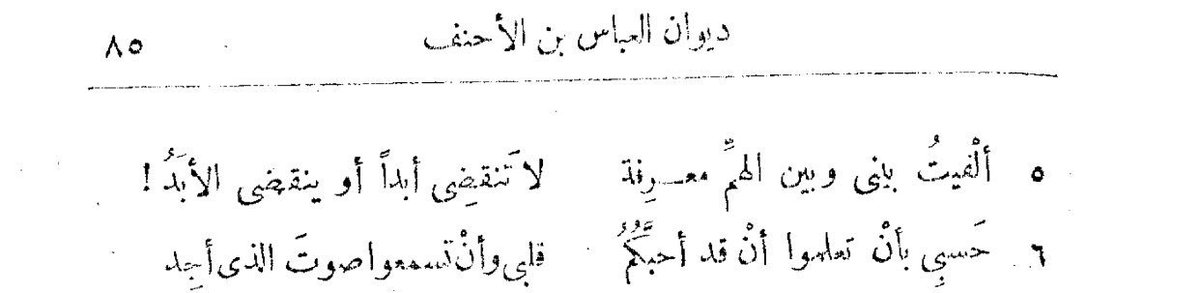 ديوان العباس بن الأحنف ٨٥
٥ ألْفيتُ بينى وبين الهمِّ معـرِفة لاَ تَنقضِى أبداً أو ينقضى الأبَدُ !
٦ حَسبِى بأنْ تعلموا أنْ قد أحبَّكُمُ قلبى وأنْ تسمعوا صوتَ الذى أجِد